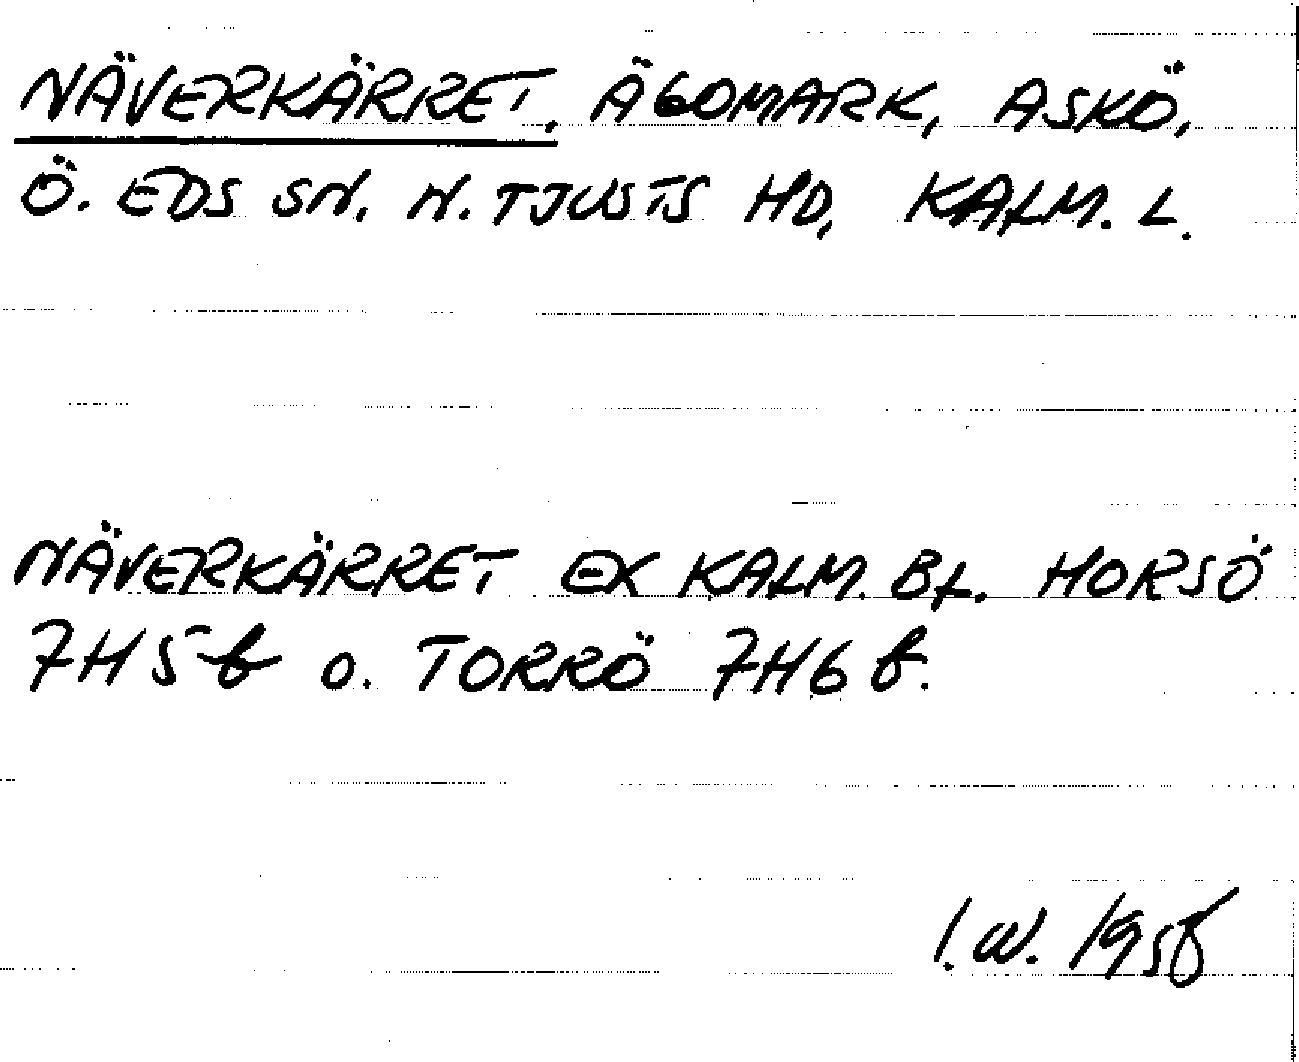 NÄVERKÄRRET, ÄGOMARK, ASKÖ,
Ö. EDS SN. N. TJUSTS HD, KALM. L.
NÄVERKÄRRET EX KALM. BL. HORSÖ
7H5b o. TORRÖ 7H6b.
I.W. 1958